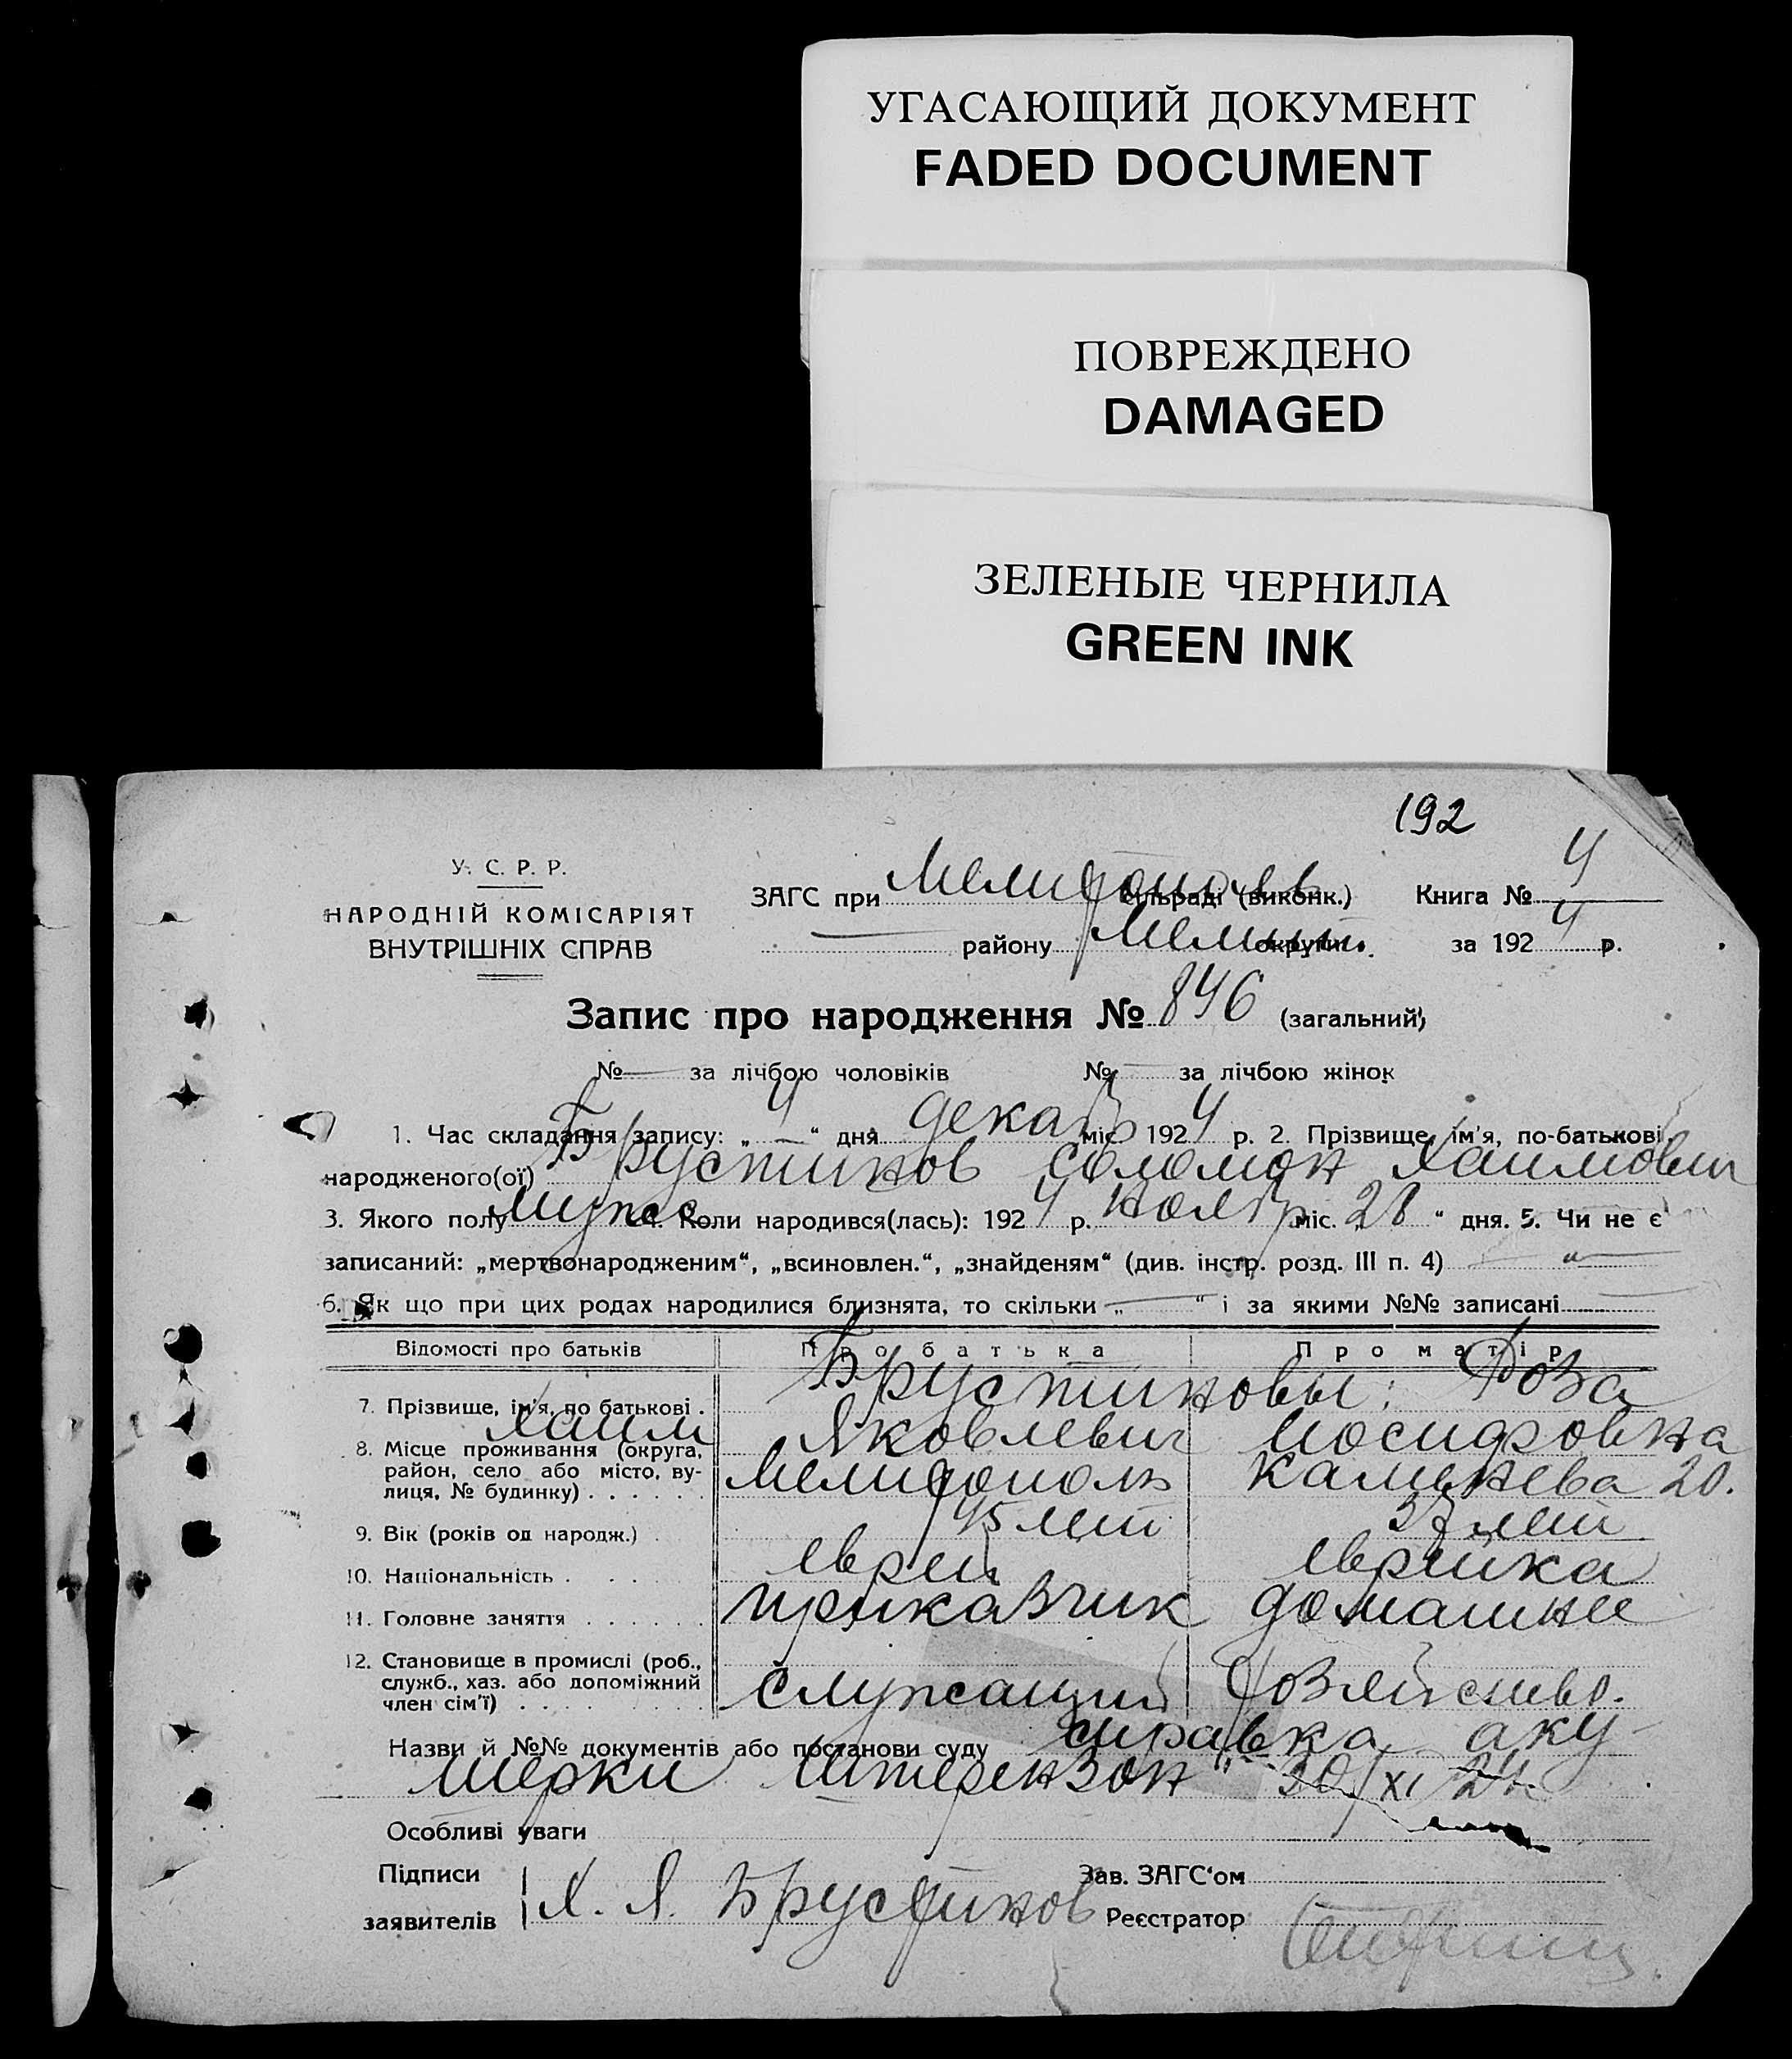 УГАСАЮЩИЙ ДОКУМЕНТ
FADED DOCUMENT
ПОВРЕЖДЕНО
DAMAGED
ЗЕЛЕНЫЕ ЧЕРНИЛА
GREEN INK
192
У. С. Р. Р.
НАРОДНІЙ КОМІСАРІЯТ
ВНУТРІШНІХ СПРАВ
ЗАГС при Мелитопольс сільраді (виконк.) Книга № 4
району Мелит. округи. за 1924 р.
Запис про народження № 846 (загальний)
№ — за лічбою чоловіків № — за лічбою жінок
1. Час складання запису: „ 4 “ дня декаб міс. 1924 р. 2. Прізвище, ім'я, по-батькові
народженого(ої) Брустинов Соломон Хаимович
3. Якого полу мужс. 4. Коли народився(лась): 1924 р. ноябр міс. 28 “ дня. 5. Чи не є
записаний: „мертвонародженим“, „всиновлен.“, „знайденям“ (див. інстр. розд. III п. 4) — „ —
6. Як що при цих родах народилися близнята, то скільки „ — “ і за якими №№ записані
Відомості про батьків Про батька Про матір
7. Прізвище, ім'я, по батькові . Брустиновы: Роза
Хаим Яковлевич Иосифовна
8. Місце проживання (округа, район, село або місто, ву-лиця, № будинку) . . . . . . Мелитополь Каменева 20.
9. Вік (років од народж.) . 45 лет 37 лет
10. Національність . . . . еврей еврейка
11. Головне заняття . . . . . . приказчик домашнее
12. Становище в промислі (роб., служб., хаз. або допоміжний член сім'ї) . . . . . . служащий хозяйство.
Назви й №№ документів або постанови суду справка аку-
шерки Штерензон 30/XI 24
Особливі уваги
Підписи Зав. ЗАГС'ом
заявителів Х. Я. Брустинов Реєстратор